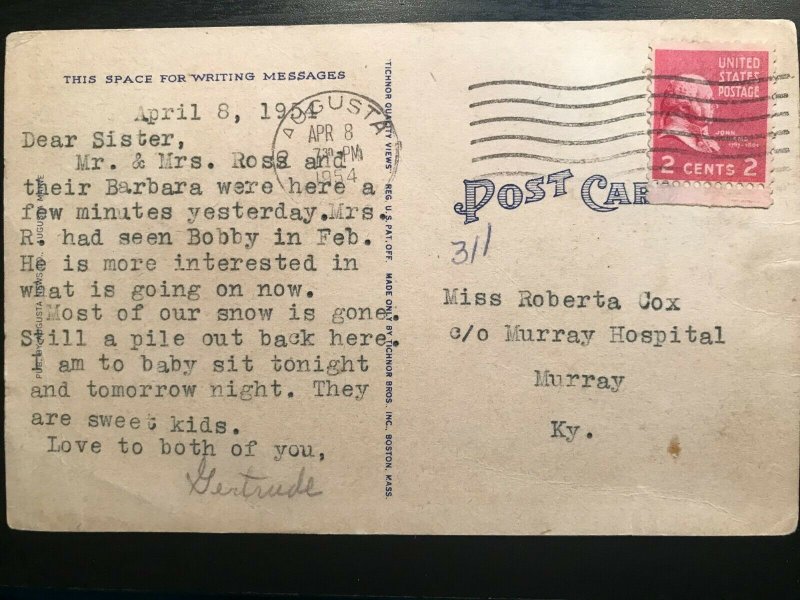 THIS SPACE FOR WRITING MESSAGES
April 8, 1954
Dear Sister,
Mr. & Mrs. Ross and
their Barbara were here a
few minutes yesterday.Mrs.
R. had seen Bobby in Feb.
He is more interested in
what is going on now.
Most of our snow is gone.
Still a pile out back here.
I am to baby sit tonight
and tomorrow night. They
are sweet kids.
Love to both of you,
Gertrude
AUGUSTA
APR 8
7 30 PM
1954
TICHNOR QUALITY VIEWS REG. U.S. PAT. OFF. MADE ONLY BY TICHNOR BROS. INC., BOSTON, MASS.
UNITED
STATES
POSTAGE
JOHN
2 CENTS 2
POST CAR
311
Miss Roberta Cox
c/o Murray Hospital
Murray
Ky.